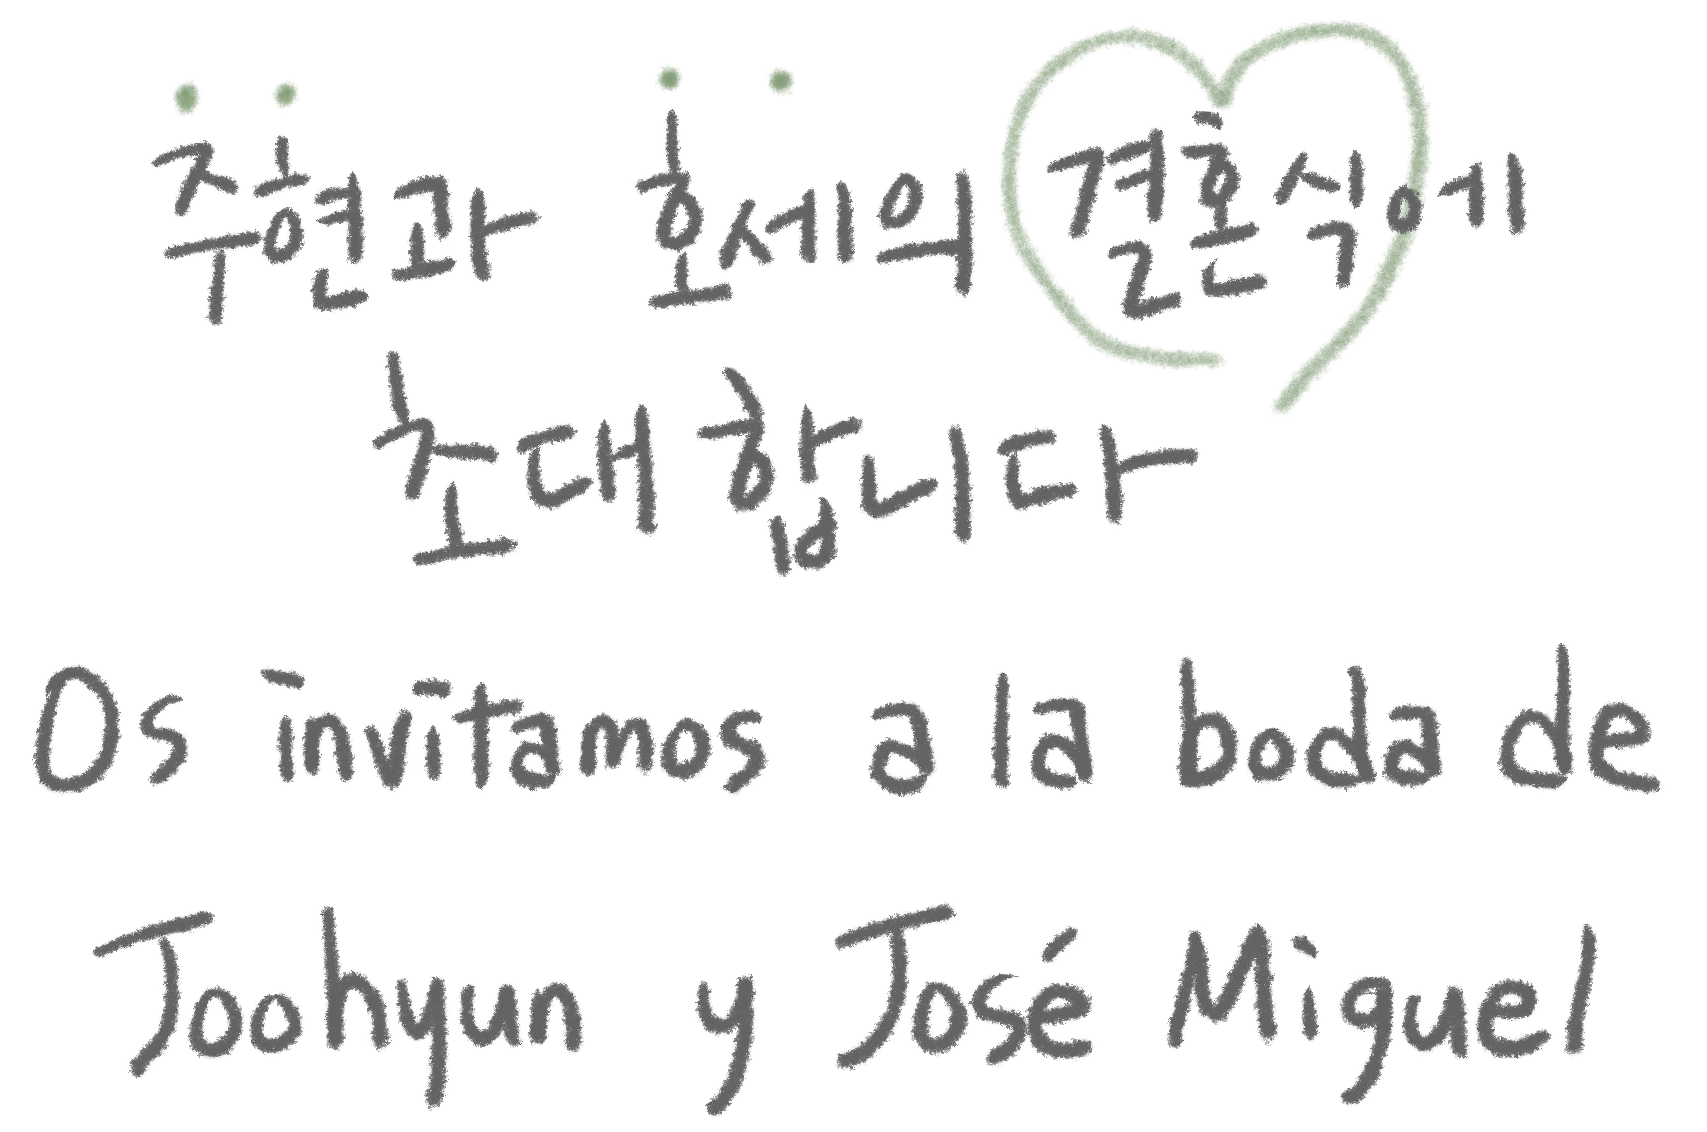 주현과 호세의 결혼식에
초대합니다
Os invitamos a la boda de
Joohyun y José Miguel